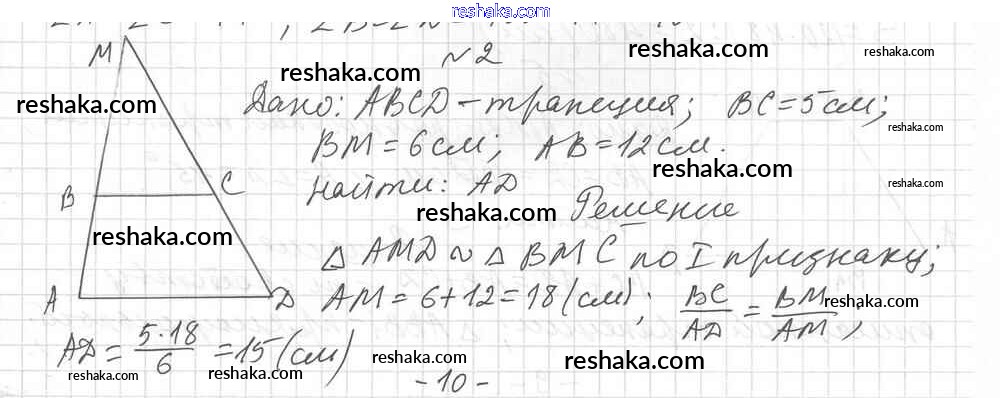 reshaka.com
№2
reshaka.com reshaka.com
M
reshaka.com Дано: ABCD – трапеция; BC = 5 см;
reshaka.com
BM = 6 см; AB = 12 см.
reshaka.com
B C Найти: AD reshaka.com
reshaka.com Решение
reshaka.com
△ AMD ∾ △ BMC по I признаку;
A D AM = 6 + 12 = 18 (см); BC/AD = BM/AM;
reshaka.com
AD = 5·18/6 = 15 (см)
reshaka.com reshaka.com reshaka.com reshaka.com
- 10 -